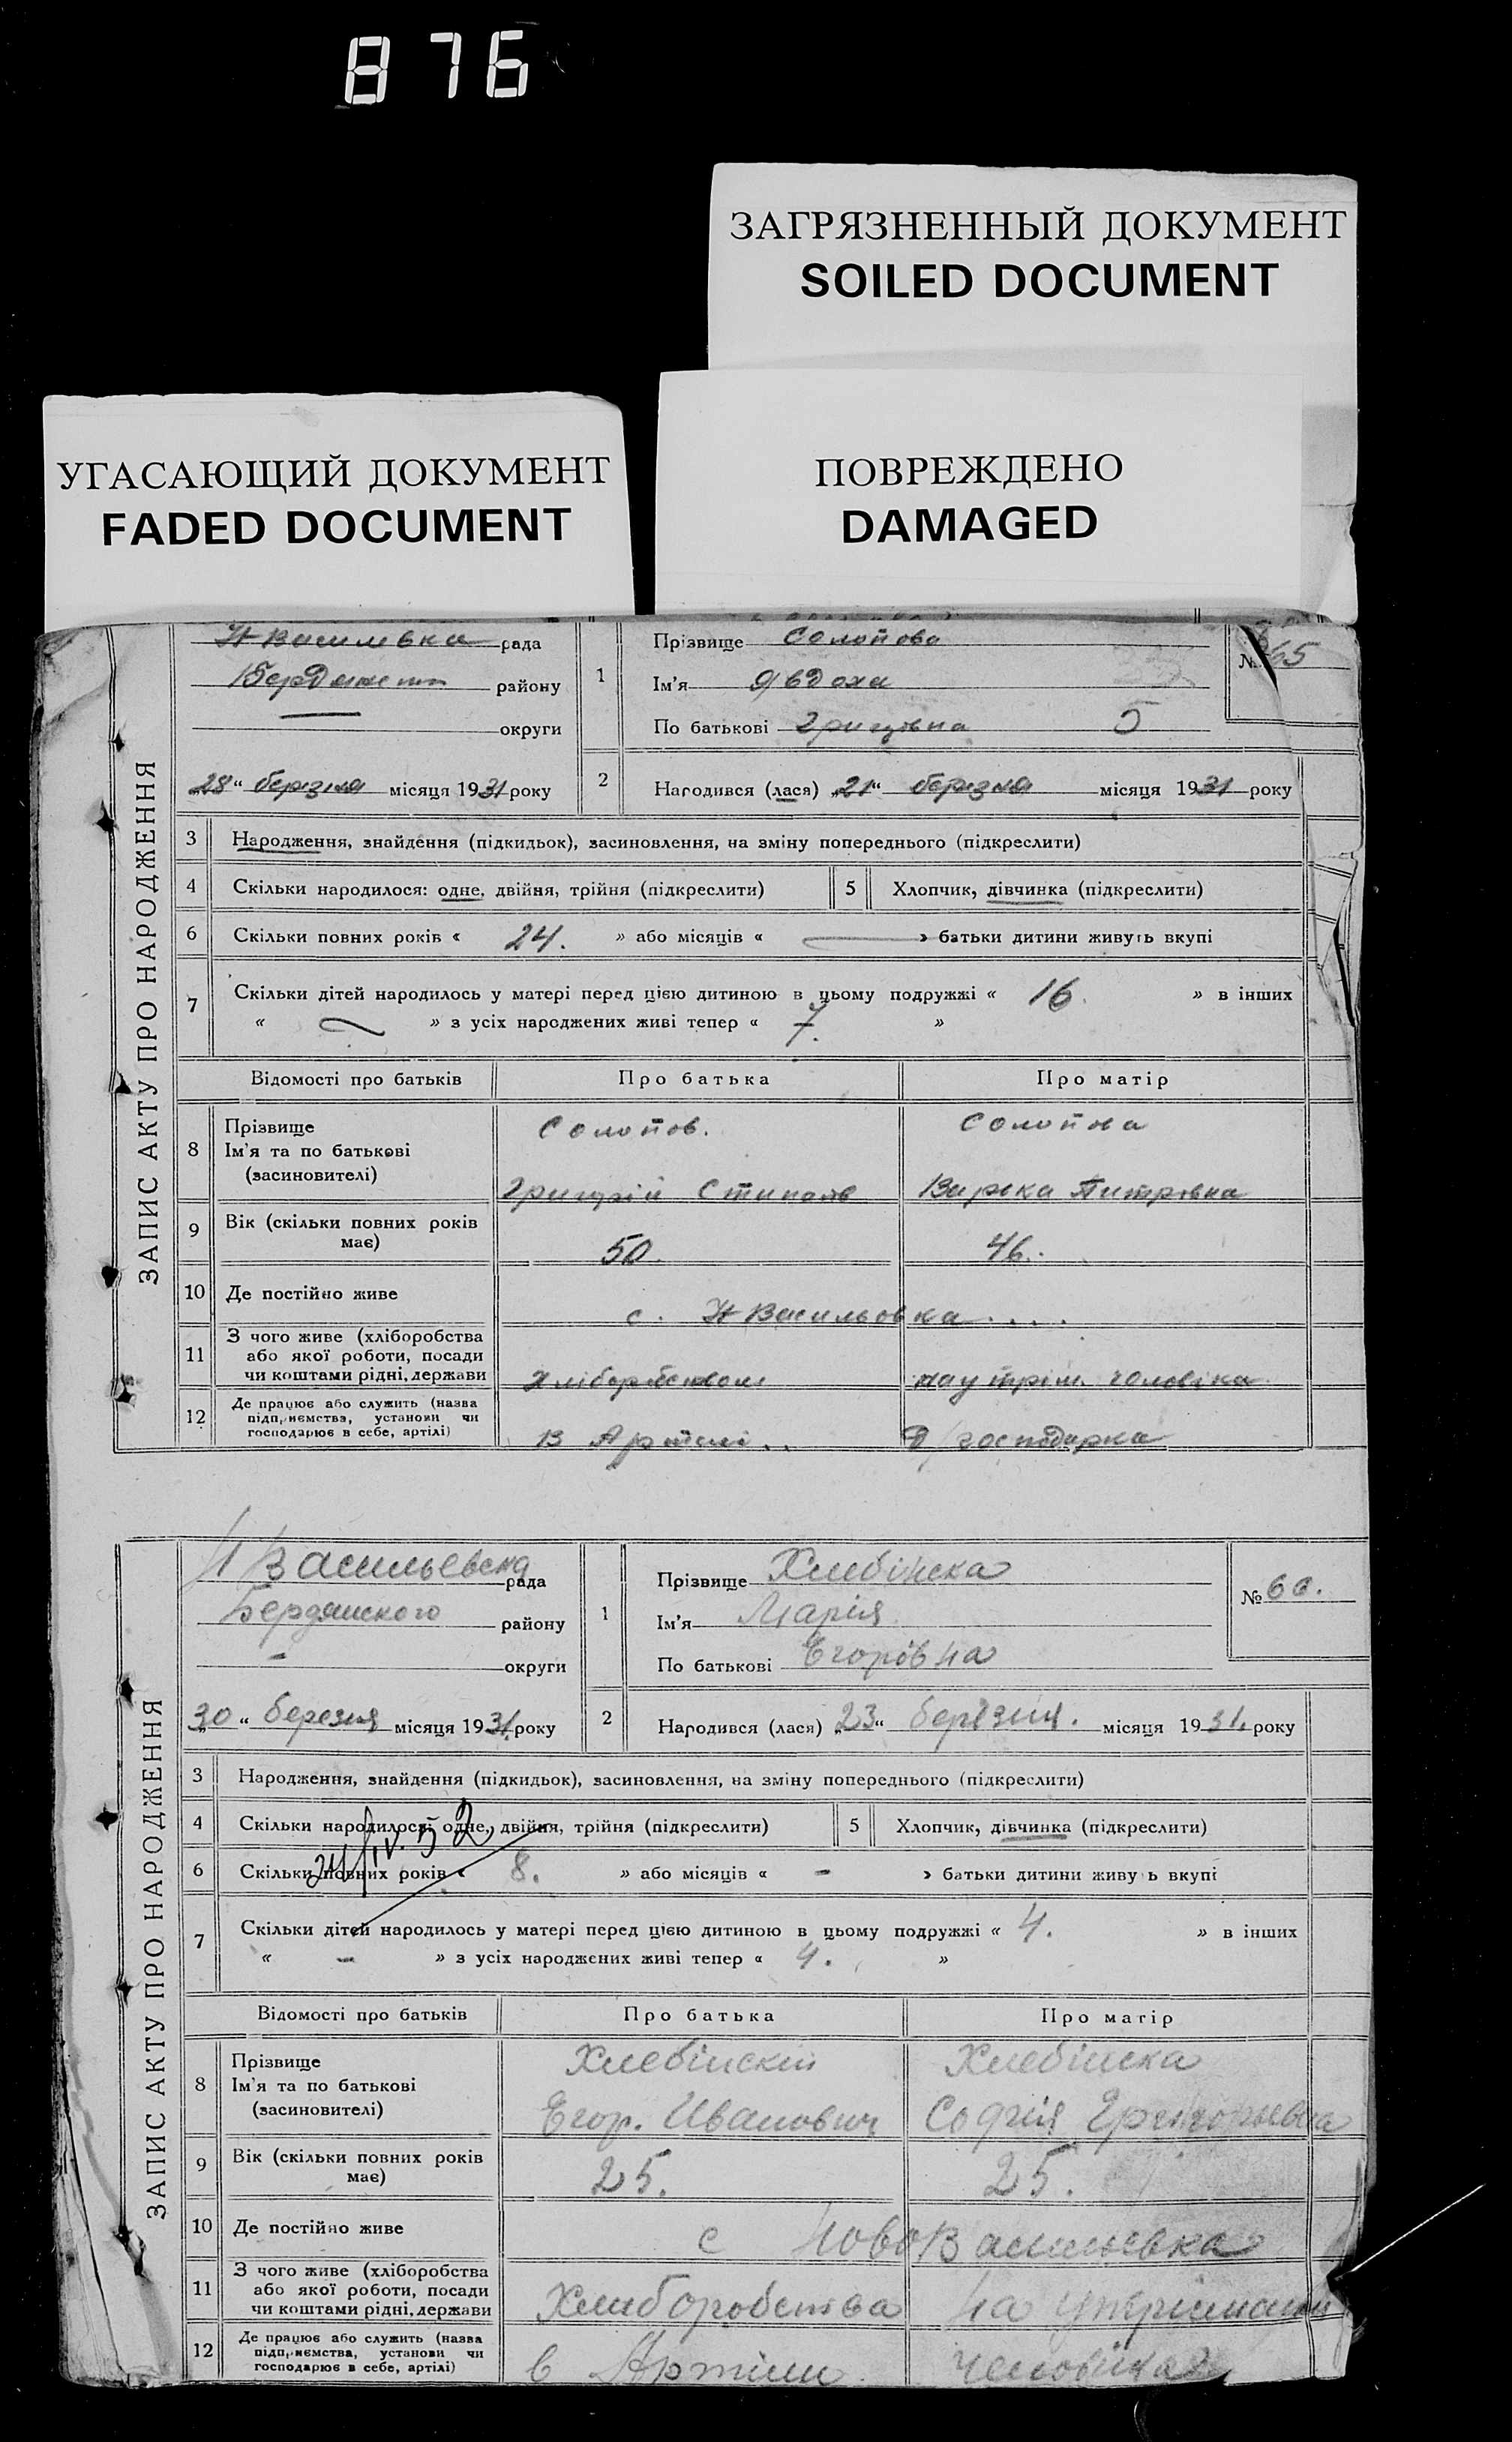 876
ЗАГРЯЗНЕННЫЙ ДОКУМЕНТ
SOILED DOCUMENT
УГАСАЮЩИЙ ДОКУМЕНТ
FADED DOCUMENT
ПОВРЕЖДЕНО
DAMAGED
ЗАПИС АКТУ ПРО НАРОДЖЕННЯ
Н Василивка рада
району
округи
„28“ березня місяця 1931 року
1
Прізвище Солопова
Ім'я Явдоха
По батькові 5
№ 65
2
Народився (лася) „21“ березня місяця 1931 року
3 Народження, знайдення (підкидьок), засиновлення, на зміну попереднього (підкреслити)
4 Скільки народилося: одне, двійня, трійня (підкреслити) 5 Хлопчик, дівчинка (підкреслити)
6 Скільки повних років « 24. » або місяців « — » батьки дитини живуть вкупі
7 Скільки дітей народилось у матері перед цією дитиною в цьому подружжі « 16. » в інших
« » з усіх народжених живі тепер « 7. »
Відомості про батьків Про батька Про матір
8 Прізвище Солопов. Солопова
Ім'я та по батькові
(засиновителі)
Петрівна
9 Вік (скільки повних років має) 50. 46.
10 Де постійно живе с. Н Васильовка
11 З чого живе (хліборобства
або якої роботи, посади
чи коштами рідні, держави чоловіка
12 Де працює або служить (назва
підприємства, установи чи
господарює в себе, артілі) В Артелі.. Д/господарка
ЗАПИС АКТУ ПРО НАРОДЖЕННЯ
Н Васильевска рада
Бердянского району
– округи
„30“ березня місяця 1931. року
1
Прізвище Хлебінска
Ім'я Марія
По батькові Егорівна
№ 66.
2
Народився (лася) „23“ березня. місяця 1931. року
3 Народження, знайдення (підкидьок), засиновлення, на зміну попереднього (підкреслити)
4 Скільки народилося: одне, двійня, трійня (підкреслити) 5 Хлопчик, дівчинка (підкреслити)
6 Скільки повних років « 8. » або місяців « – » батьки дитини живуть вкупі
7 Скільки дітей народилось у матері перед цією дитиною в цьому подружжі « 4. » в інших
« – » з усіх народжених живі тепер « 4. »
Відомості про батьків Про батька Про матір
8 Прізвище Хлебінскій Хлебінска
Ім'я та по батькові
(засиновителі) Егор. Иванович Софія Григорьевна
9 Вік (скільки повних років має) 25. 25.
10 Де постійно живе с НовоВасильевка
11 З чого живе (хліборобства
або якої роботи, посади
чи коштами рідні, держави Хлиборобства На
12 Де працює або служить (назва
підприємства, установи чи
господарює в себе, артілі) в Артіли